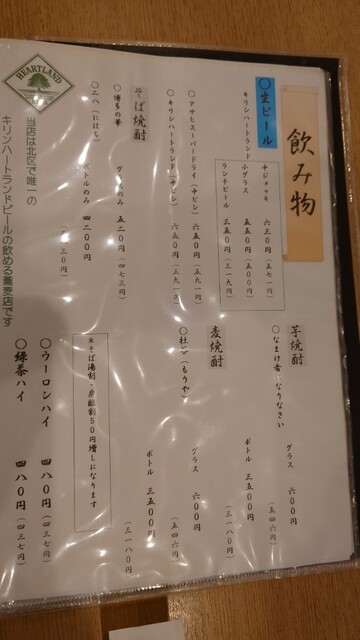 飲み物
〇生ビール
キリンハートランド
中ジョッキ 六三〇円 (五七一円)
小グラス 五五〇円 (五〇〇円)
ランチビール 三五〇円 (三一九円)
〇アサヒスーパードライ(中ビン) 六五〇円 (五九一円)
〇キリンハートランド(中ビン) 六五〇円 (五九一円)
そば焼酎
〇博多の華
グラスのみ 五二〇円 (四七三円)
〇二八(にはち)
ボトルのみ 四二〇〇円
芋焼酎
〇なまけ者になりなさい
グラス 六〇〇円 (五四六円)
ボトル 三五〇〇円 (三一八〇円)
麦焼酎
〇杜谷(もりや)
グラス 六〇〇円 (五四六円)
ボトル 三五〇〇円 (三一八〇円)
*そば湯割・炭酸割50円増しになります
〇ウーロンハイ 四八〇円 (四三七円)
〇緑茶ハイ 四八〇円 (四三七円)
HEARTLAND
当店は北区で唯一の
キリンハートランドビールの飲める蕎麦店です